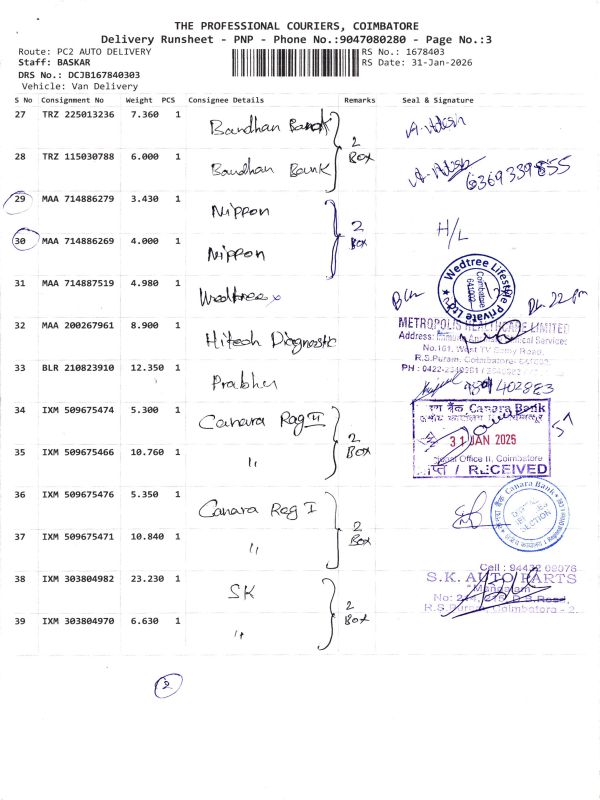 THE PROFESSIONAL COURIERS, COIMBATORE
Delivery Runsheet - PNP - Phone No.:9047080280 - Page No.:3
Route: PC2 AUTO DELIVERY
RS No.: 1678403
Staff: BASKAR
RS Date: 31-Jan-2026
DRS No.: DCJB167840303
Vehicle: Van Delivery
S No Consignment No Weight PCS Consignee Details Remarks Seal & Signature
27 TRZ 225013236 7.360 1 Bandhan Bank
2 Box
28 TRZ 115030788 6.000 1 Bandhan Bank
29 MAA 714886279 3.430 1 Nippon
2 Box H/L
30 MAA 714886269 4.000 1 Nippon
31 MAA 714887519 4.980 1 Wedtree
Wedtree Lifestyle Private Ltd.
Coimbatore
641002
32 MAA 200267961 8.900 1 Hitech Diagnostic
METROPOLIS HEALTHCARE LIMITED
Address:
No.161, West TV Samy Road,
R.S.Puram, Coimbatore-
PH : 0422-
33 BLR 210823910 12.350 1 Prabhu
34 IXM 509675474 5.300 1 Canara Reg II
2 Box
केनरा बैंक Canara Bank
31 JAN 2026
Office II, Coimbatore
/ RECEIVED
57
35 IXM 509675466 10.760 1 "
36 IXM 509675476 5.350 1 Canara Reg I
2 Box
Canara Bank
SECTION
37 IXM 509675471 10.840 1 "
38 IXM 303804982 23.230 1 SK
2 Box
Cell : 94422
S.K. AUTO PARTS
"Mangalam"
No:
R.S. Puram, Coimbatore - 2.
39 IXM 303804970 6.630 1 "
2